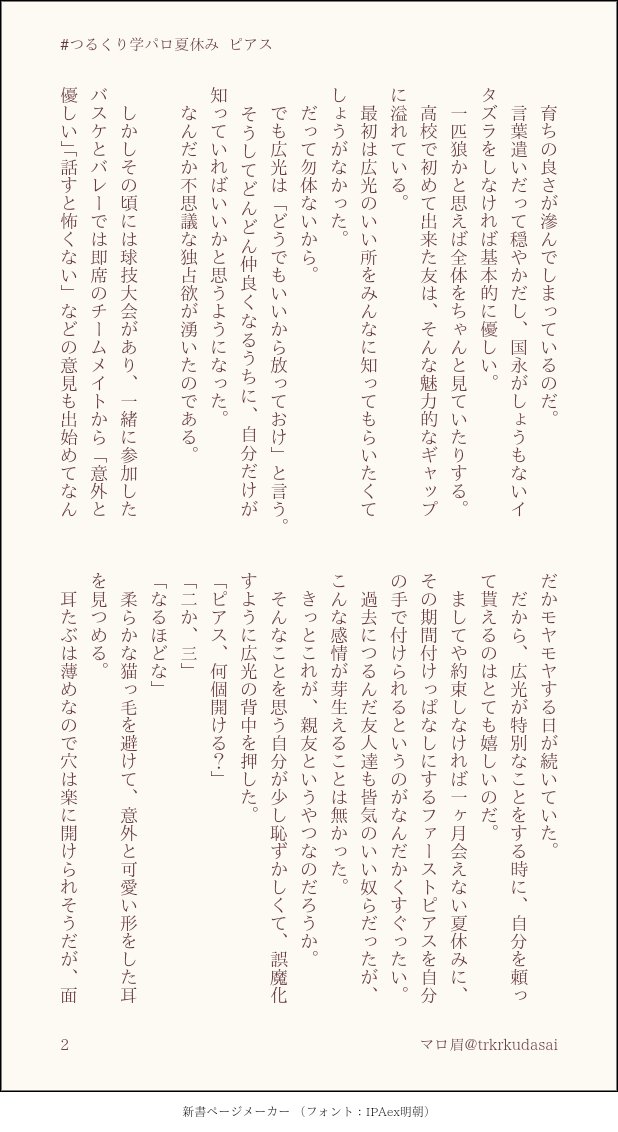 #つるくり学パロ夏休み ピアス
育ちの良さが滲んでしまっているのだ。
言葉遣いだって穏やかだし、国永がしょうもないイ
タズラをしなければ基本的に優しい。
一匹狼かと思えば全体をちゃんと見ていたりする。
高校で初めて出来た友は、そんな魅力的なギャップ
に溢れている。
最初は広光のいい所をみんなに知ってもらいたくて
しょうがなかった。
だって勿体ないから。
でも広光は「どうでもいいから放っておけ」と言う。
そうしてどんどん仲良くなるうちに、自分だけが
知っていればいいかと思うようになった。
なんだか不思議な独占欲が湧いたのである。
しかしその頃には球技大会があり、一緒に参加した
バスケとバレーでは即席のチームメイトから「意外と
優しい」「話すと怖くない」などの意見も出始めてなん
だかモヤモヤする日が続いていた。
だから、広光が特別なことをする時に、自分を頼っ
て貰えるのはとても嬉しいのだ。
ましてや約束しなければ一ヶ月会えない夏休みに、
その期間付けっぱなしにするファーストピアスを自分
の手で付けられるというのがなんだかくすぐったい。
過去につるんだ友人達も皆気のいい奴らだったが、
こんな感情が芽生えることは無かった。
きっとこれが、親友というやつなのだろうか。
そんなことを思う自分が少し恥ずかしくて、誤魔化
すように広光の背中を押した。
「ピアス、何個開ける?」
「二か、三」
「なるほどな」
柔らかな猫っ毛を避けて、意外と可愛い形をした耳
を見つめる。
耳たぶは薄めなので穴は楽に開けられそうだが、面
2
マロ眉@trkrkudasai
新書ページメーカー （フォント：IPAex明朝）